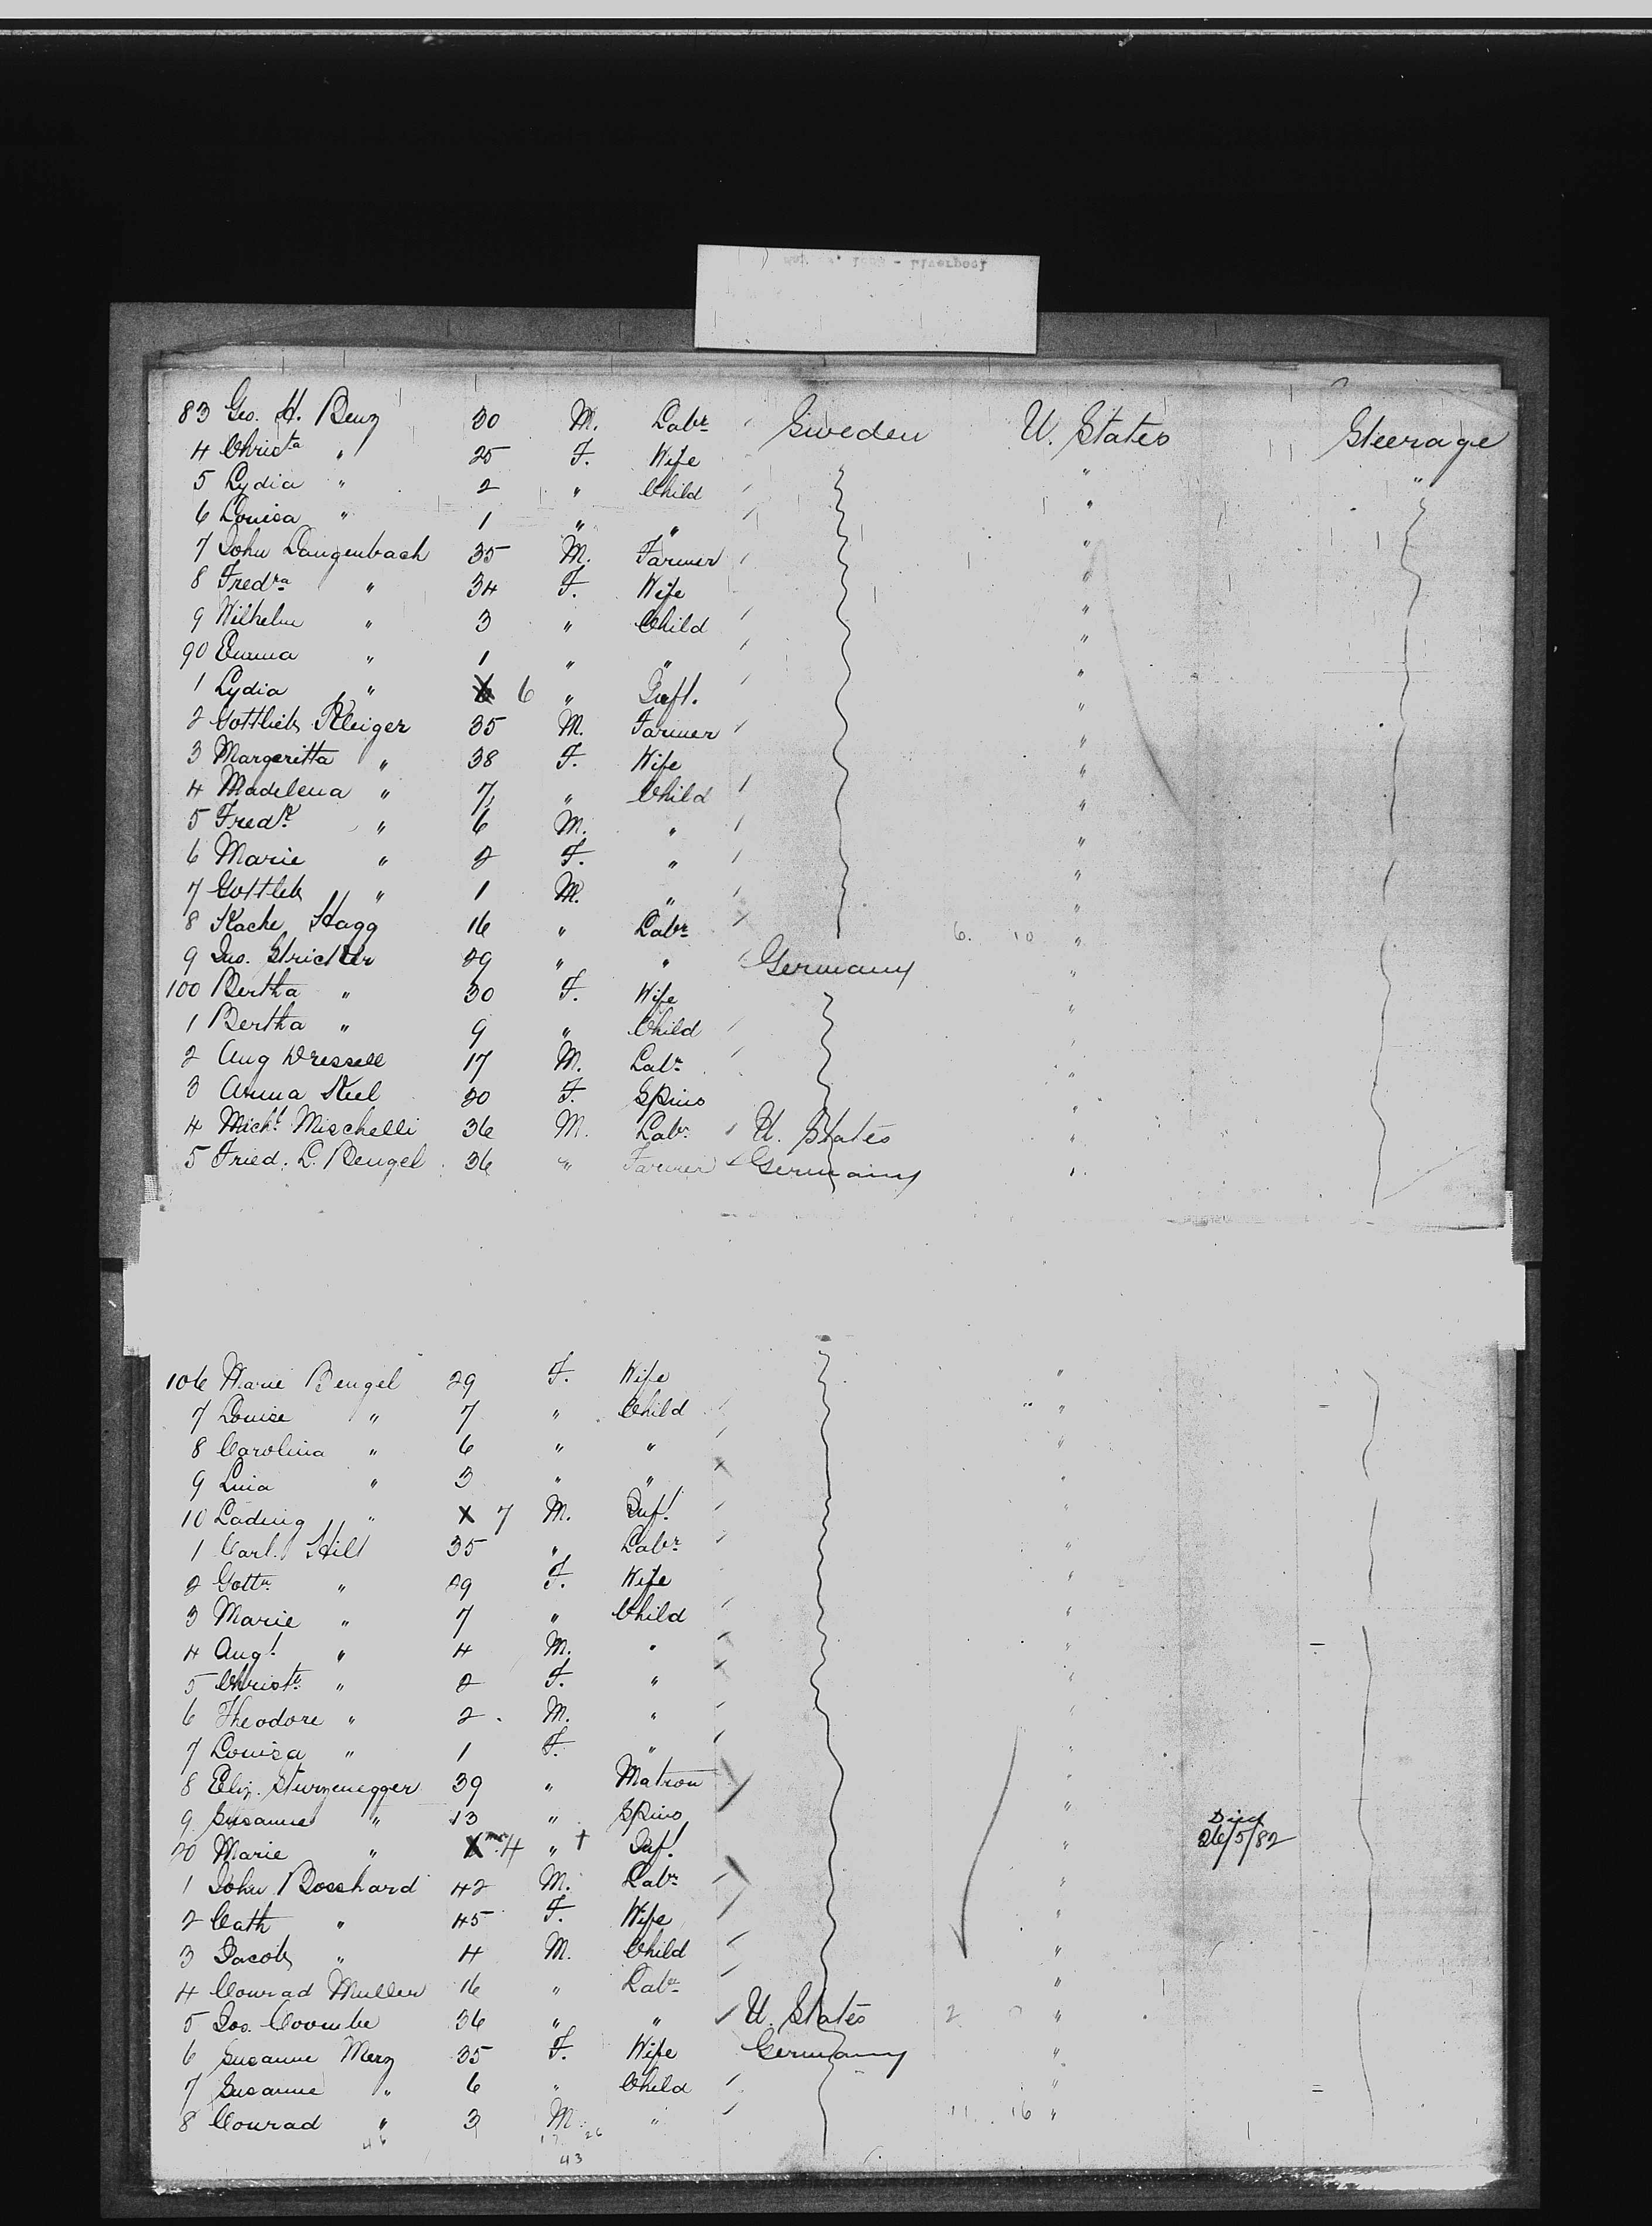 83 Geo. H. Benz 30 M. Labr Sweden U. States Steerage
4 Christa " 25 F. Wife " "
5 Lydia " 2 " Child "
6 Louisa " 1 " " "
7 John Dangenbach 35 M. Farmer "
8 Fredra " 34 F. Wife "
9 Wilhelm " 3 " Child "
90 Emma " 1 " " "
1 Lydia " 6 " Inft. "
2 Gottlieb Kleiger 35 M. Farmer "
3 Margeritta " 38 F. Wife "
4 Madelena " 7 " Child "
5 Fredk " 6 M. " "
6 Marie " 2 F. " "
7 Gottlieb " 1 M. " "
8 Kache Hagg 16 " Labr 6. 10 "
9 Jno. Stricker 29 " " Germany "
100 Bertha " 30 F. Wife "
1 Bertha " 9 " Child "
2 Aug Dressell 17 M. Labr "
3 Anna Kiel 20 F. Spins "
4 Michl Mischelli 36 M. Labr U. States "
5 Fried. L. Bengel 36 " Farmer Germany "
106 Marie Bengel 29 F. Wife "
7 Louise " 7 " Child "
8 Carolina " 6 " " "
9 Lina " 3 " " "
10 Lading " X 7 M. Inf! "
1 Carl Hill 35 " Labr "
2 Gottn " 29 F. Wife "
3 Marie " 7 " Child "
4 Aug! " 4 M. " "
5 Christe " 2 F. " "
6 Theodore " 2 M. " "
7 Louisa " 1 F. " "
8 Eliz. Sturzenegger 39 " Matron "
9 Susanne " 13 " Spins " Died
20 Marie " X mos 4 " † Inf! " 26/5/82
1 John Bosshard 42 M. Labr "
2 Cath " 45 F. Wife "
3 Jacob " 4 M. Child "
4 Conrad Muller 16 " Labr "
5 Jos. Coombe 36 " " U. States 2 "
6 Susanne Merz 35 F. Wife Germany "
7 Susanne " 6 " Child "
8 Conrad " 3 M. " 11 16 "
46 17 26
43